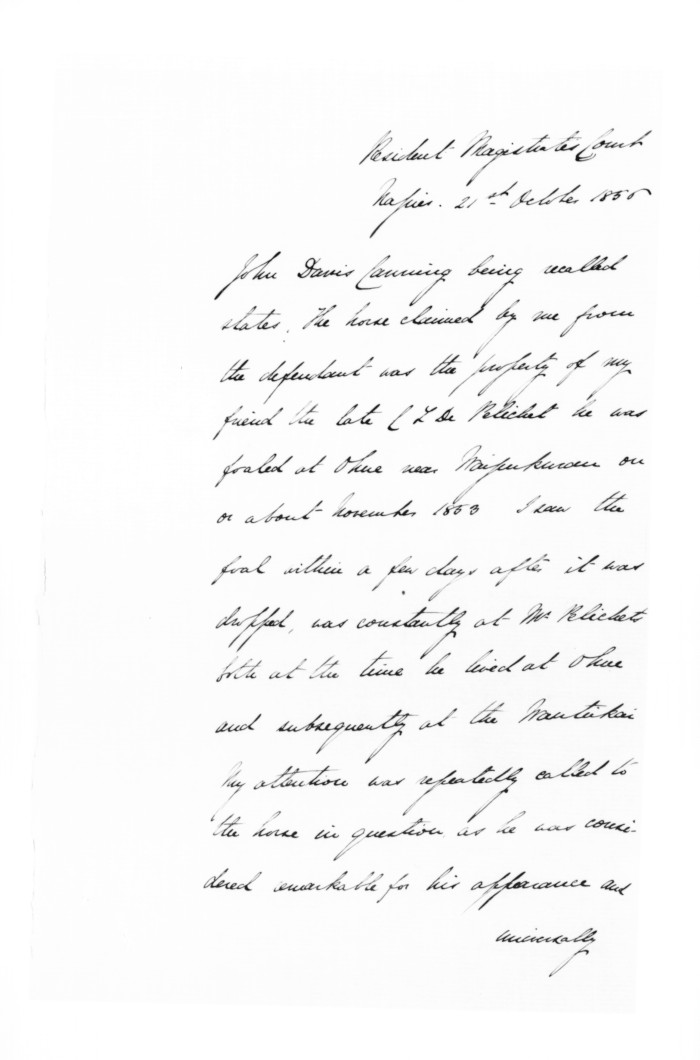 Resident Magistrates Court
Napier. 21st October 1858
John Davis Canning being recalled
states. The horse claimed by me from
the defendant was the property of my
friend the late C L De Pelichet he was
foaled at Ohue near Waipukurau on
or about November 1853 I saw the
foal within a few days after it was
dropped, was constantly at Mr Pelichets
both at the time he lived at Ohue
and subsequently at the
My attention was repeatedly called to
the horse in question as he was consi-
dered remarkable for his appearance and
universally